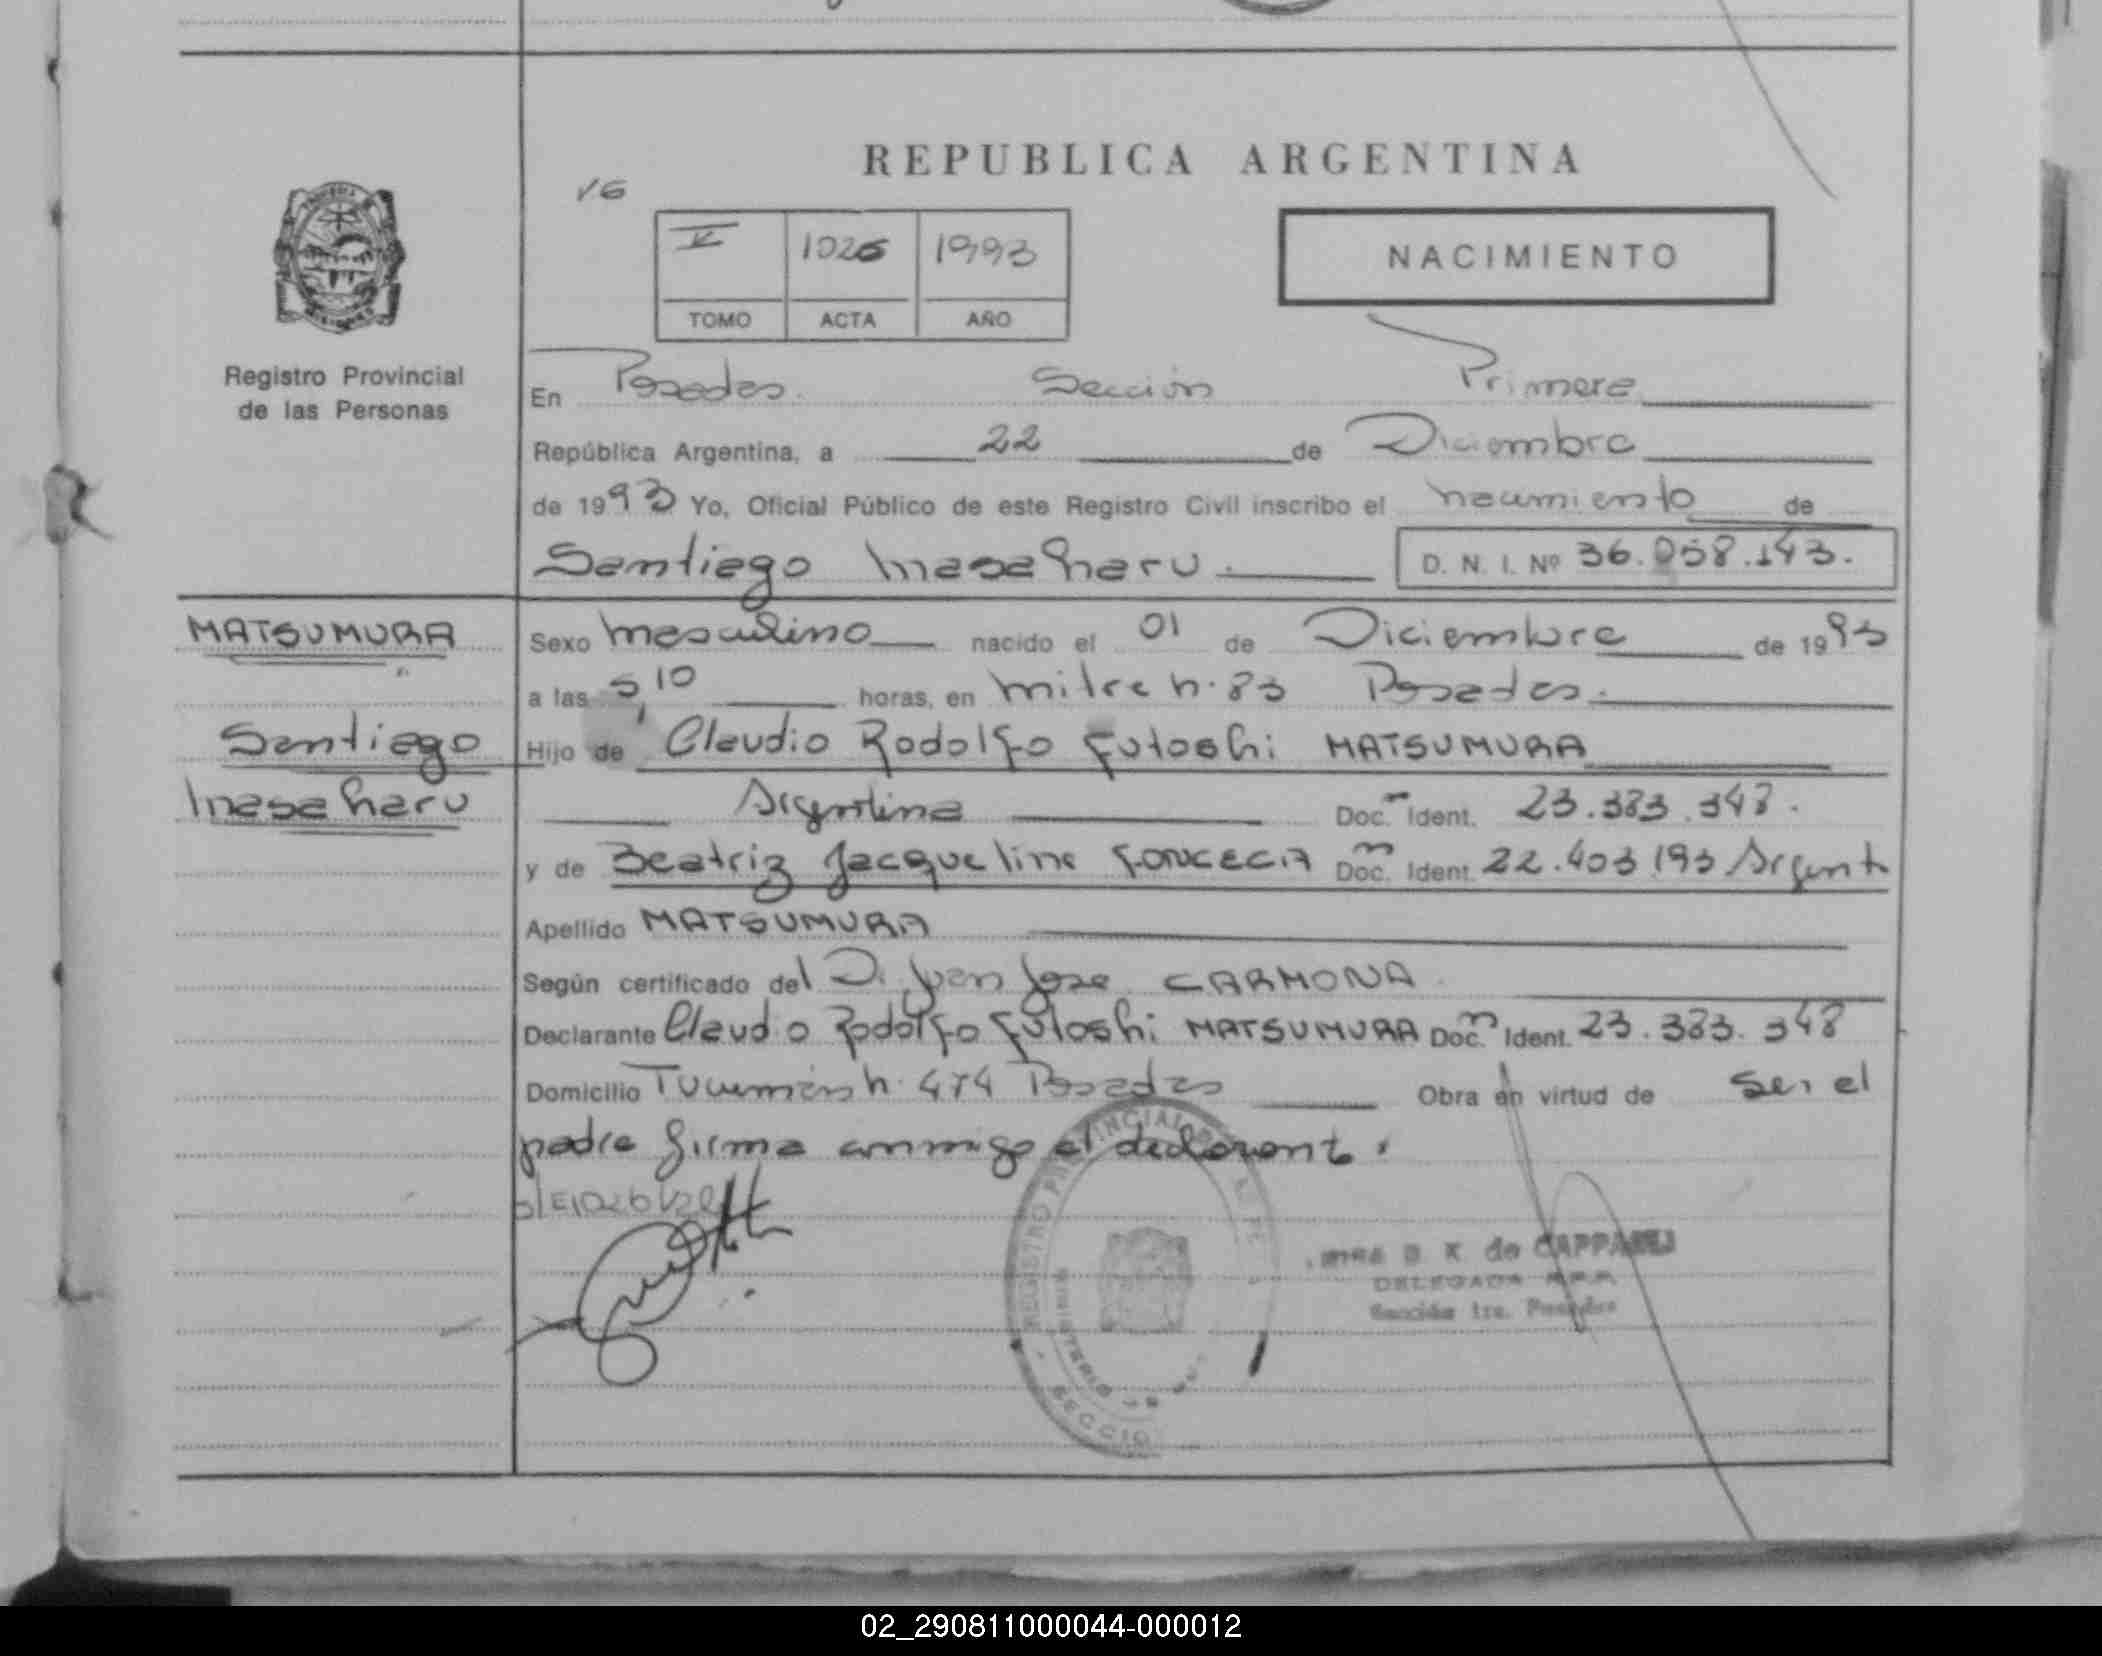 REPUBLICA ARGENTINA
V 1026 1993
TOMO ACTA AÑO
NACIMIENTO
Registro Provincial
de las Personas
En Posadas. Sección Primera
República Argentina, a 22 de Diciembre
de 1993 Yo, Oficial Público de este Registro Civil inscribo el nacimiento de
Santiago Masaharu. D. N. I. Nº 36.058.143.
MATSUMURA
Santiago
Masaharu
Sexo masculino nacido el 01 de Diciembre de 1993
a las 5,10 horas, en mitre n. 83 Posadas.
Hijo de Claudio Rodolfo Futoshi MATSUMURA
Argentina Doc. Ident. 23.383.348.
y de Beatriz Jacqueline FONCECA Doc. Ident. 22.403.193 Argent
Apellido MATSUMURA
Según certificado del D. Juan Jose CARMONA
Declarante Claudio Rodolfo Futoshi MATSUMURA Doc. Ident. 23.383.348
Domicilio Tucumán n. 474 Posadas Obra en virtud de ser el
padre firma conmigo el declarante.
de CAPPA
DELEGADA
Sección 1ra. Posadas
REGISTRO
SECCIO
02_290811000044-000012